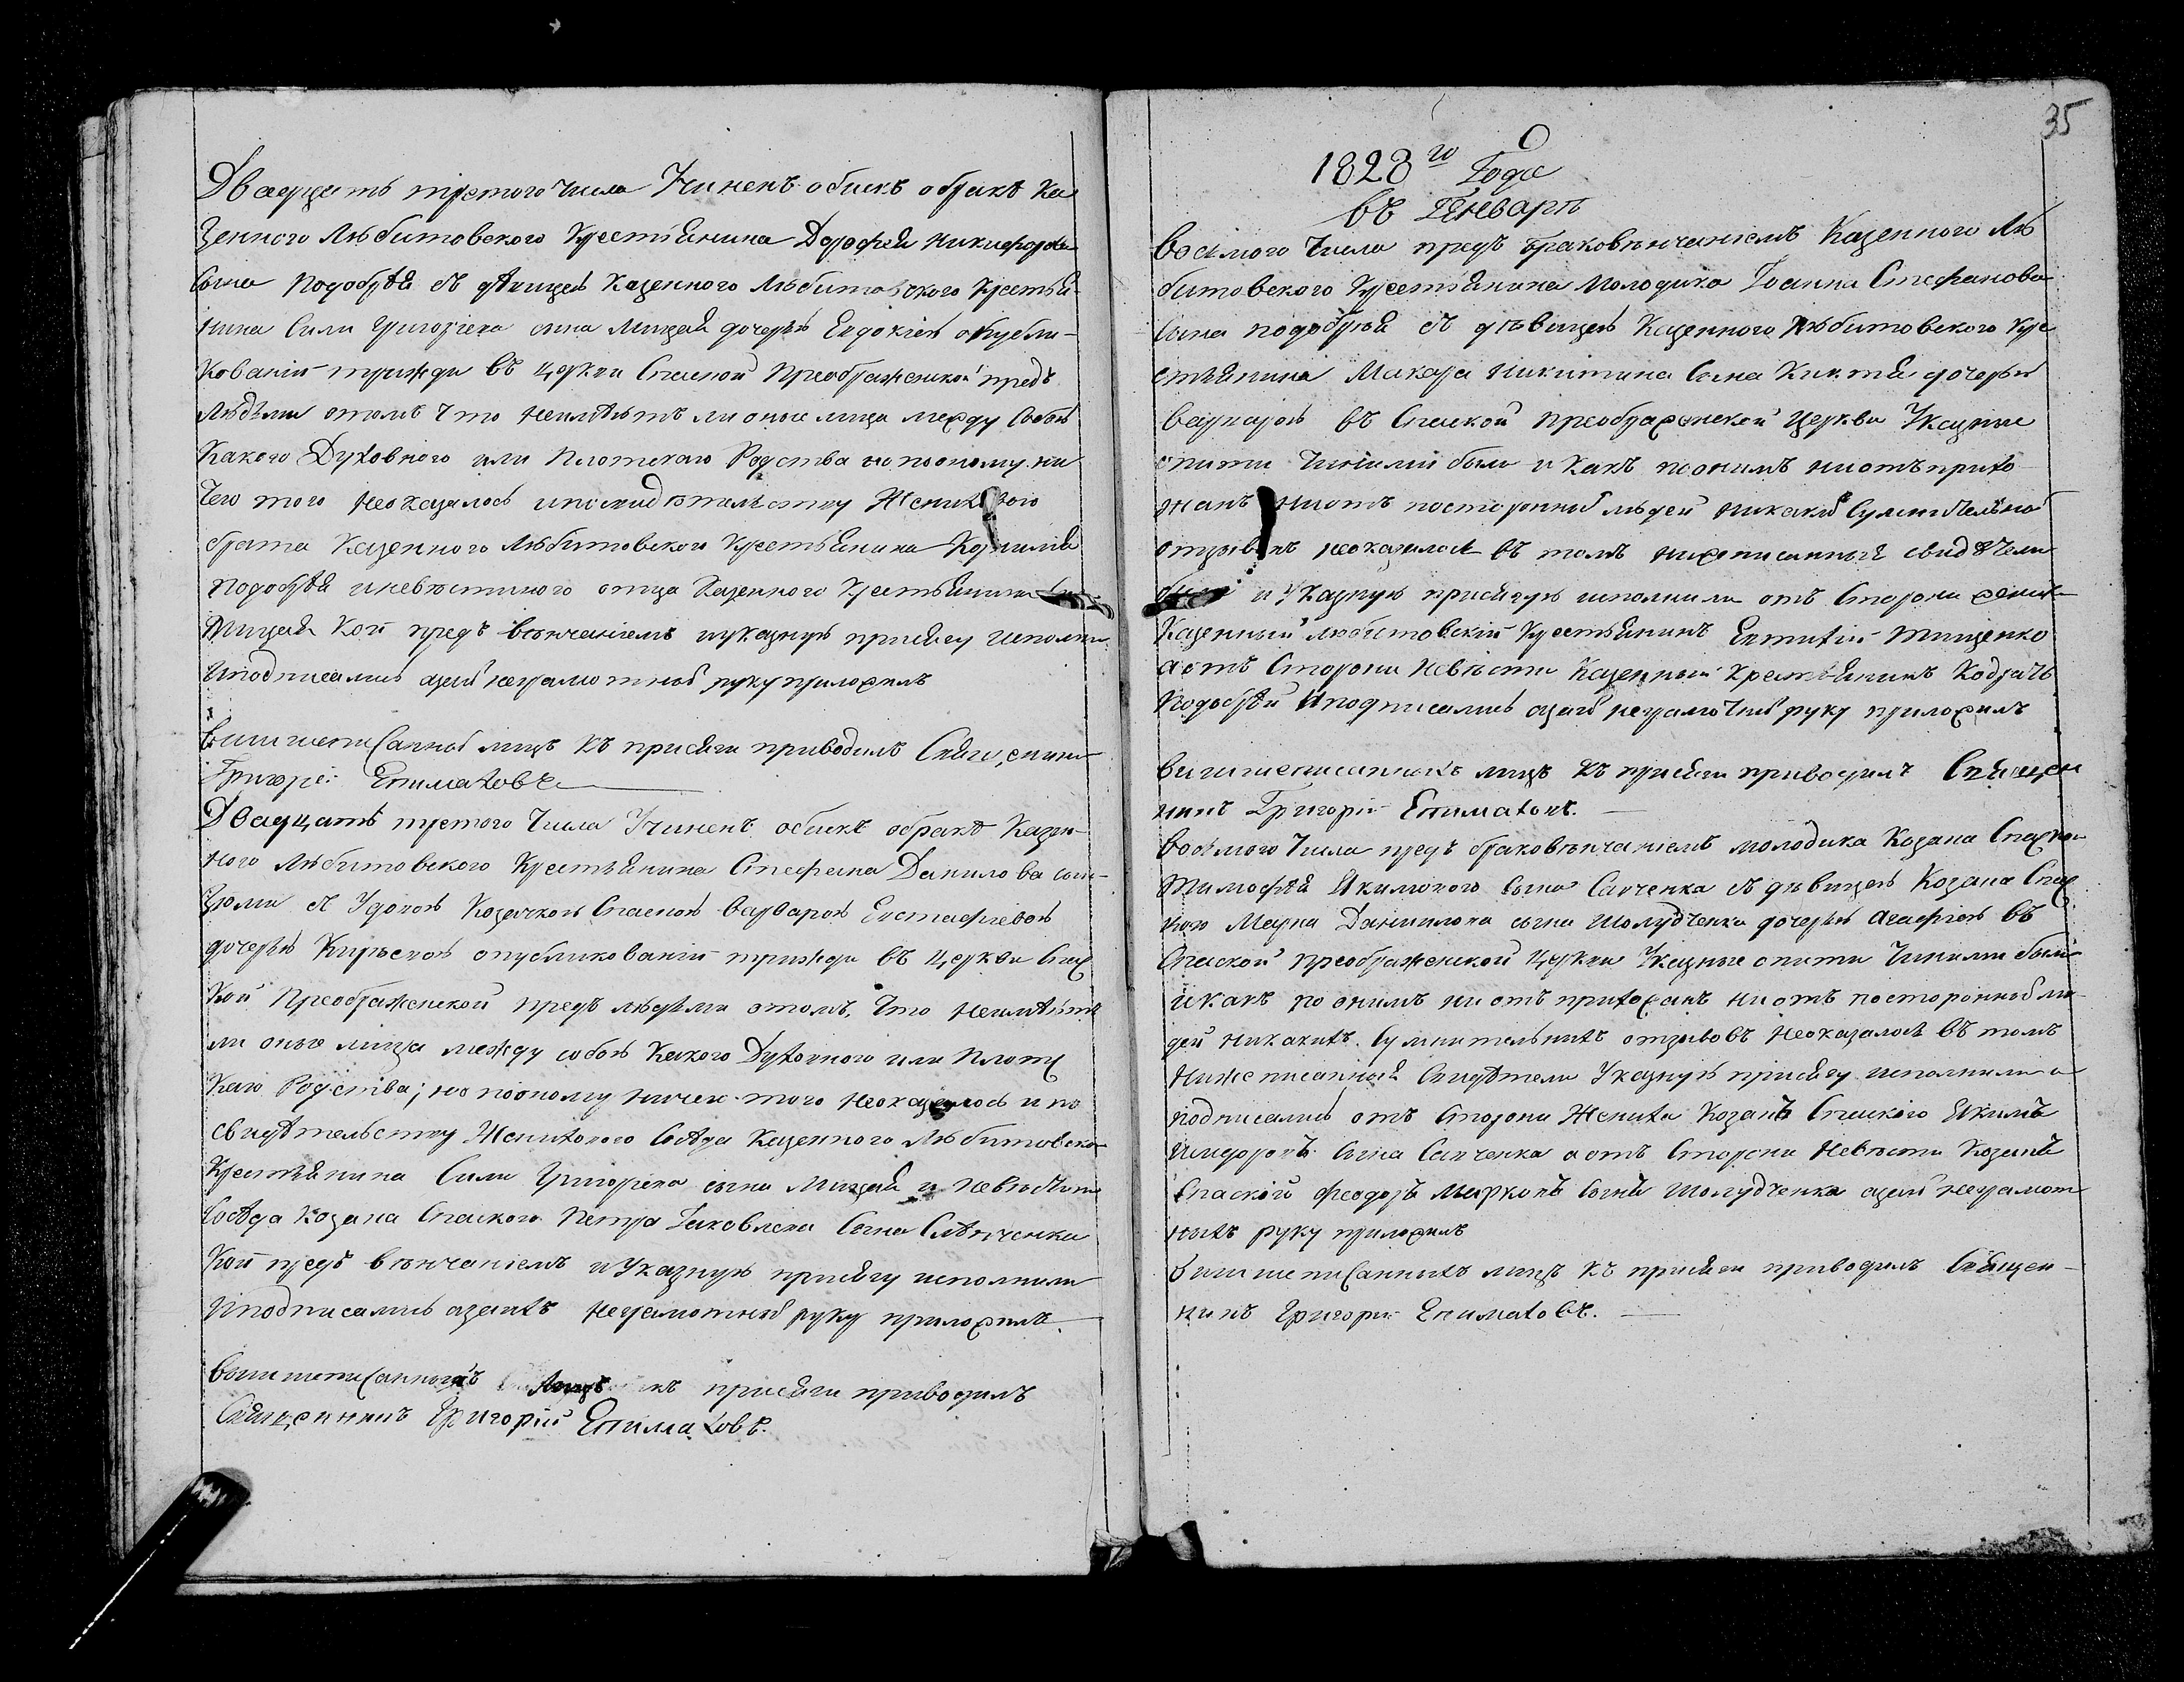 Двадцать третого числа Учиненъ обыскъ обракѣ Ка
зенного Любитовского Крестьянина Дорофея Никифорова
сына Подобѣя съ дѣвицею Казенного Любитовского Крестья-
нина Сили Григорiева сына Мицая дочерью Евдокiею опубли-
кованiй трижди въ церкви Спаской Преображенской предъ
людьми отомъ что неимѣютъ ли оные лица между собою
Какого Духовного или Плотскаго Родства но поономуни
чего того неоказалось ипосвидѣтельству Жениховою
брата Казенного Любитовского Крестьянина Корнилия
Подобѣя иневѣстиного отца Казенного Крестьянина
Мицая Кои предъ вѣнчанiемъ иуказную присягу исполни
Иподписались азаихъ неграмотныхъ руку приложилъ
вышшеписанныхъ лицъ къ присяги приводилъ Священни
Григорiй Епимаховъ
Двадцать третого числа Учиненъ обыскъ обракѣ Казен-
ного Любитовского Крестьянина Стефана Данилова сын-
съ Удовою Козачкою Спаскою варварою Евстафiевою
дочерью опубликованiй трижди въ церкви Спас
кой Преображенской предъ людьми отомъ, что неимѣютъ
ли оные лица между собою Какого Духовного или Плотс
Каго Родства; но поономy ничего того неоказалось и по
свидѣтельству Женихового сосѣда Казенного Любитовско
Крестьянина Сили Григорiева сына Мицая и невѣстин
сосѣда Козака Спаского Петра Iаковлева сына
Кои предъ вѣнчанiемъ иУказную присягу исполнили
Иподписались азаихъ неграмотныхъ руку приложилъ.
вышшеписанныхъ лицъ къ присяги приводилъ
Священникъ Григорiй Епимаховъ.
35
1828го Года
въ Генварѣ
восмого числа предъ браковѣнчанiемъ Казенного Лю
битовского Крестьянина молодика Iоанна Стефанова
сына подобѣя съ дѣвицею Казенного Любитовского Кре
стьянина Макара Никитина сына дочерью
варварою въ Спаской преображенской церкви Указные
опити чинили было и какъ поонимъ ниотъ прихо
жанъ ниотъ посторонныхъ людей никакихъ сумнительныхъ
отзывовъ неоказалось въ томъ нижеписанныя свидѣтели
и Указную присягу исполнили отъ стороны жених
Казенный любитовскiй Крестьянинъ Евтихiй Тищенко
аотъ стороны невѣсты Казенный Крестьянинъ Кодратъ
Подобѣй Иподписались азаихъ неграмотныхъ руку приложилъ
вишшеписанныхъ лицъ къ присяги приводилъ Священ
никъ Григорiй Епимаховъ.
восмого числа предъ браковѣнчанiемъ молодика Козака Спаско
Тимофѣя Якимового сына Савченка съ дѣвицею Козака Спас
кого Марка Даниилова сына Шолудченка дочерью Агафiею въ
Спаской преображенской церкви Указные опити чинили были
икакъ по онимъ ни отъ прихожанъ ни отъ посторонныхъ лю-
дей никакихъ сумнительнихъ отзивовъ неоказалось въ томъ
нижеписанныя Свидѣтели Указную присягу исполнили и
подписались отъ стороны Жениха Козакъ Спаского Якимъ
сына Савченка аотъ стороны Невѣсты Козакъ
Спаской Феодоръ Марковъ сынъ Шолудченка азаихъ неграмот
ныхъ руку приложилъ
вишшеписанныхъ лицъ къ присяги приводилъ Священ-
никъ Григорiй Епимаховъ.